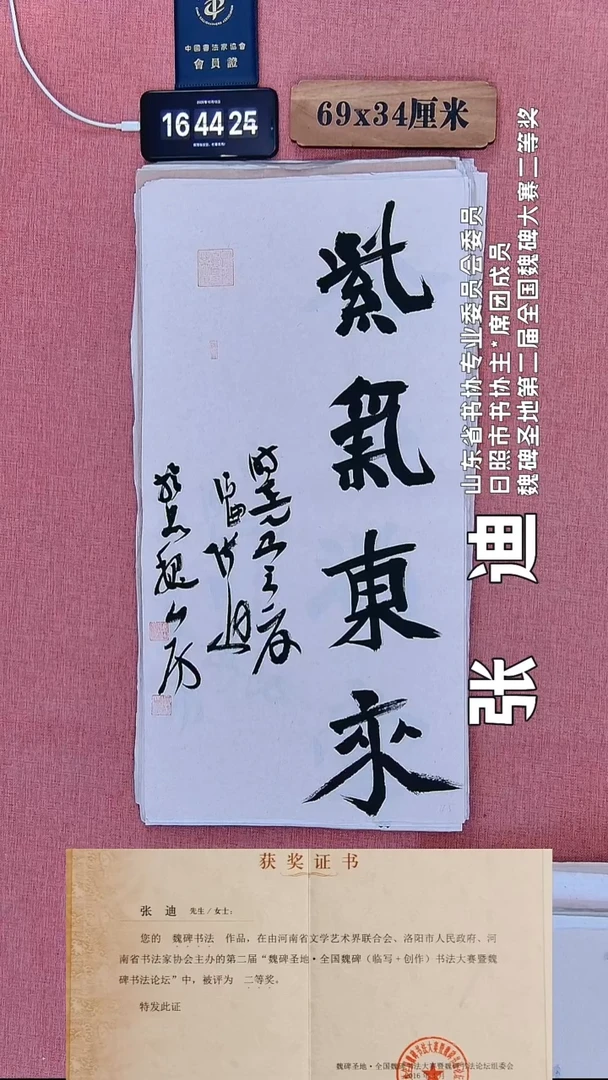 中國書法家協會
會員證
16 44 24
69x34厘米
紫氣東來
山东省书协专业委员会委员
日照市书协主*席团成员
魏碑圣地第二届全国魏碑大赛二等奖
张 迪
获奖证书
张 迪 先生/女士：
您的 魏碑书法 作品，在由河南省文学艺术界联合会、洛阳市人民政府、河
南省书法家协会主办的第二届“魏碑圣地·全国魏碑（临写+创作）书法大赛暨魏
碑书法论坛”中，被评为 二等奖。
特发此证
魏碑圣地·全国魏碑书法大赛暨魏碑书法论坛组委会